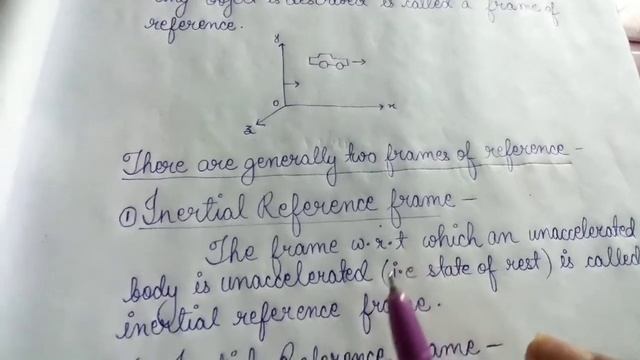 object is described is called a frame of
reference.
y
O
x
z
There are generally two frames of reference -
① Inertial Reference frame -
The frame w.r.t which an unaccelerated
body is unaccelerated (i.e state of rest) is called
inertial reference frame.
Reference frame -